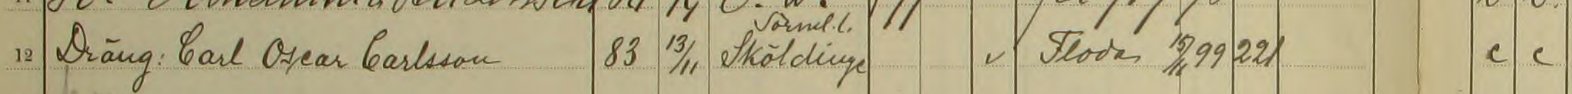 Sörml. l.
12 Dräng: Carl Oscar Carlsson 83 13/11 Sköldinge v Floda 15/11 99 221 c c